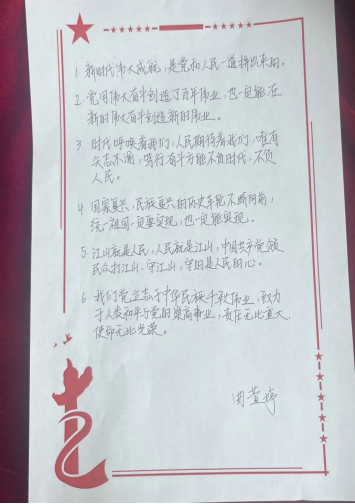 1. 新时代伟大成就，是党和人民一道拼出来的。
2. 党用伟大奋斗创造了百年伟业，也一定能在
新的伟大奋斗创造新的伟业。
3. 时代呼唤着我们，人民期待着我们，唯有
矢志不渝，笃行奋斗方能不负时代，不负
人民。
4. 国家复兴，民族复兴的历史车轮不断向前，
统一祖国一定要实现，也一定能实现。
5. 江山就是人民，人民就是江山，中国共产党领
民众打江山、守江山，守的是人民的心。
6. 我们党立志于中华民族千秋伟业，致力
于人类和平与党的崇高事业，责任无比重大，
使命无比光荣。
萱婷